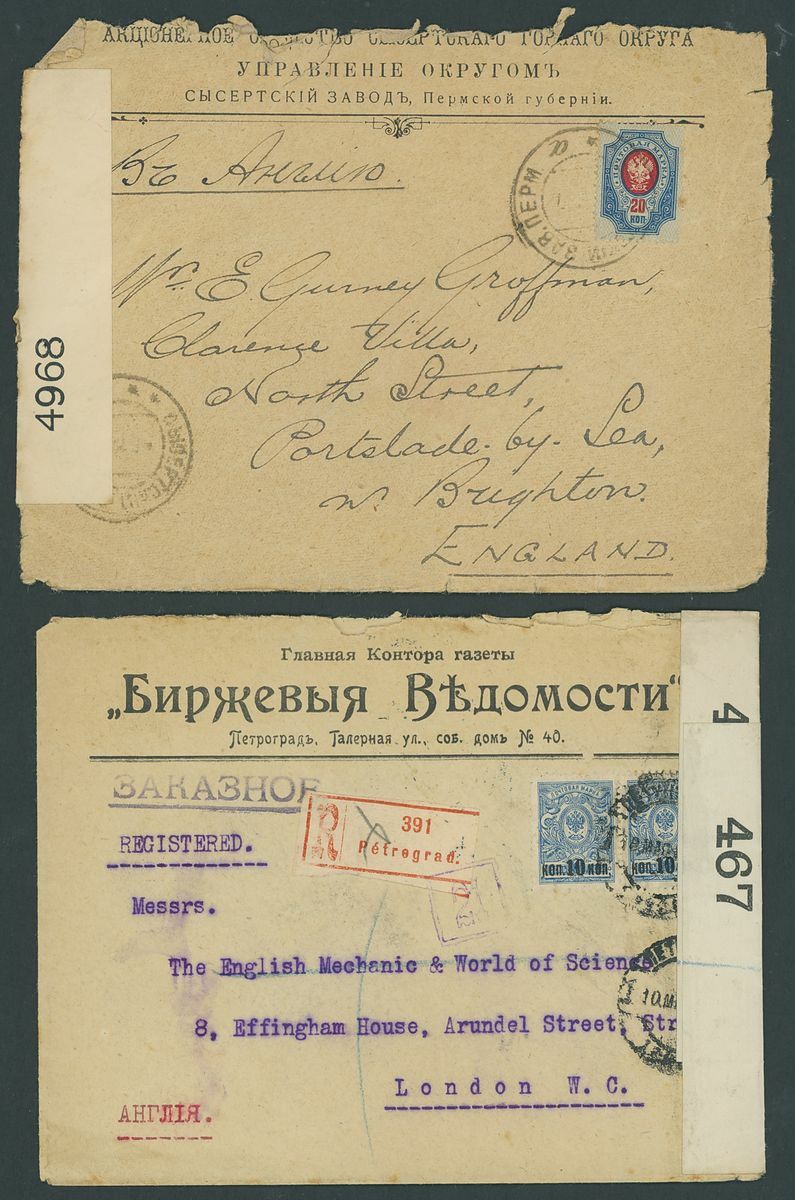 АКЦІОНЕРНОЕ ОБЩЕСТВО СЫСЕРТСКАГО ГОРНАГО ОКРУГА
УПРАВЛЕНІЕ ОКРУГОМЪ
СЫСЕРТСКІЙ ЗАВОДЪ, Пермской губерніи.
Въ Англію.
ПОЧТОВАЯ МАРКА
20
КОП
ЗАВ. ПЕРМ
Mr. E. Gurney Groffman,
Clarence Villa,
North Street,
Portslade-by-Sea,
nr. Brighton.
ENGLAND.
4968
Главная Контора газеты
„Биржевыя Вѣдомости“
Петроградъ, Галерная ул., соб. домъ № 40.
ЗАКАЗНОЕ
R
391
Pétrograd.
REGISTERED.
ПОЧТОВАЯ МАРКА
КОП. 10 КОП.
КОП. 10
4
467
Messrs.
The English Mechanic & World of Science
8, Effingham House, Arundel Street, Str
London W. C.
АНГЛІЯ.